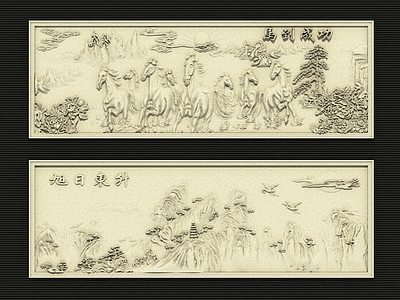 馬到成功
旭日東升